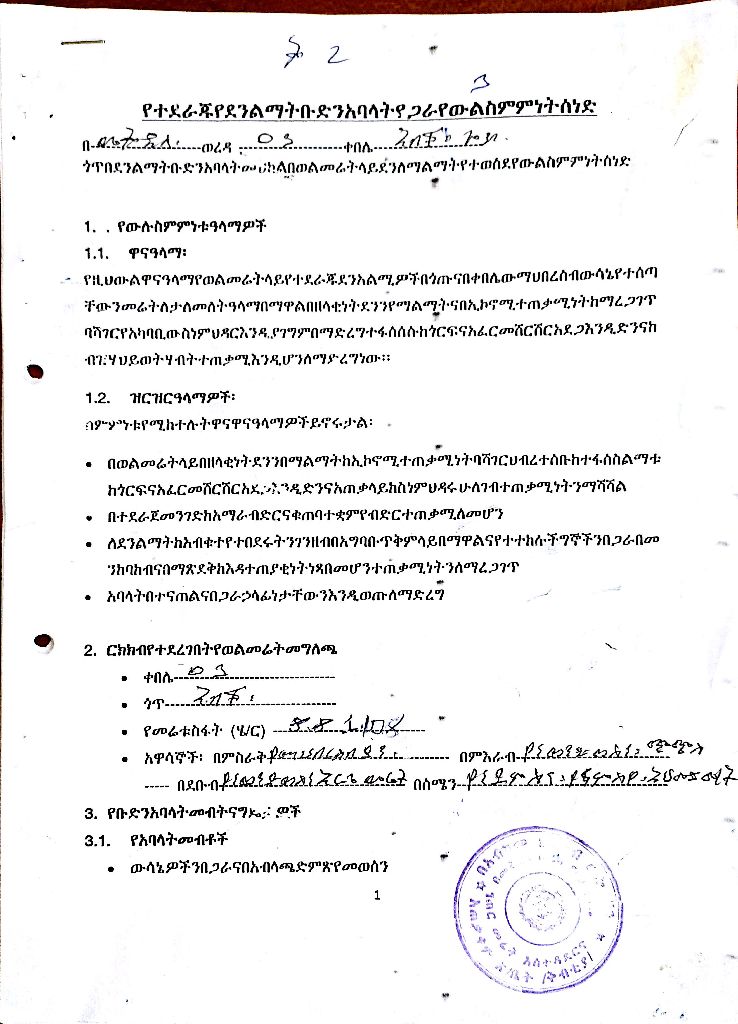 2
3
የተደራጁየደንልማትቡድንአባላትየጋራየውልስምምነትሰነድ
በ ወረዳ 03 ቀበሌ
ጎጥበደንልማትቡድንአባላትመሀከልበወልመሬትላይደንለማልማትየተወሰደየውልስምምነትሰነድ
1. . የውሉስምምነቱዓላማዎች
1.1. ዋናዓላማ፡
የዚህውልዋናዓላማየወልመሬትላይየተደራጁደንአልሚዎችበጎጡናበቀበሌውማህበረሰብውሳኔየተሰጣ
ቸውንመሬትለታለመለትዓላማበማዋልበዘላቂነትደንንየማልማትናበኢኮኖሚተጠቃሚነትከማረጋገጥ
ባሻገርየአካባቢውስነምህዳርእንዲያገግምበማድረግተፋሰሱከጎርፍናአፈርመሸርሸርአደጋእንዲድንናከ
ብዝሃህይወትሃብትተጠቃሚእንዲሆንለማድረግነው፡፡
1.2. ዝርዝርዓላማዎች፡
ስምምነቱየሚከተሉትዋናዋናዓላማዎችይኖሩታል፡
• በወልመሬትላይበዘላቂነትደንንበማልማትከኢኮኖሚተጠቃሚነትባሻገርህብረተሰቡከተፋሰስልማቱ
ከጎርፍናአፈርመሸርሸርአደጋእንዲድንናአጠቃላይከስነምህዳሩሁለገብተጠቃሚነትንማሻሻል
• በተደራጀመንገድከአማራብድርናቁጠባተቋምየብድርተጠቃሚለመሆን
• ለደንልማትከአብቁተየተበደሩትንገንዘብበአግባቡጥቅምላይበማዋልናየተተከሉችግኞችንበጋራበመ
ንከባከብናበማጽደቅከእዳተጠያቂነትነጻበመሆንተጠቃሚነትንለማረጋገጥ
• አባላትበተናጠልናበጋራኃላፊነታቸውንእንዲወጡለማድረግ
2. ርክክብየተደረገበትየወልመሬትመግለጫ
• ቀበሌ 03
• ጎጥ
• የመሬቱስፋት (ሄ/ር)
• አዋሳኞች፡ በምስራቅ በምእራብ
በደቡብ በሰሜን
3. የቡድንአባላትመብትናግዴታዎች
3.1. የአባላትመብቶች
• ውሳኔዎችንበጋራናበአብላጫድምጽየመወሰን
1